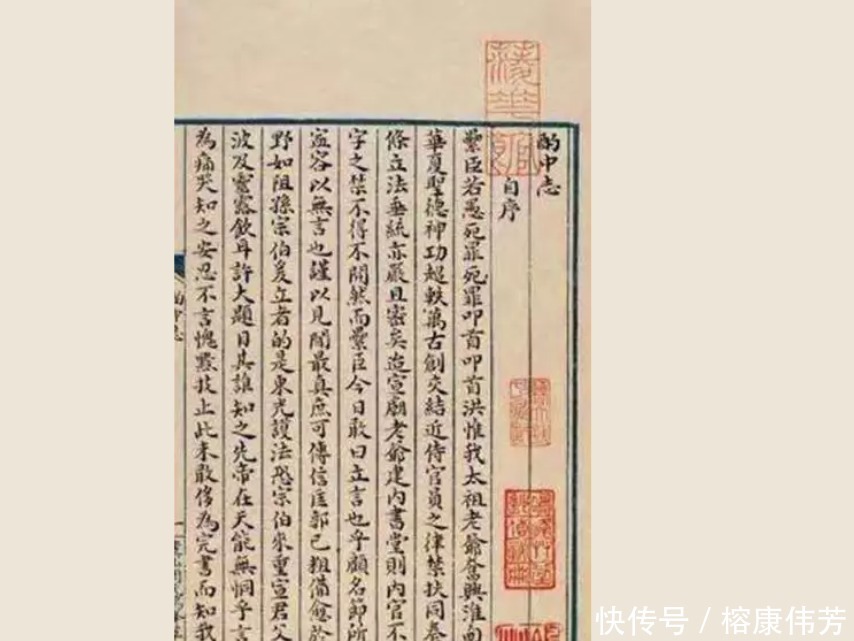 酌中志
自序
纍臣若愚死罪死罪叩首叩首洪惟我太祖老爺奮興淮甸
華夏聖德神功超軼萬古創交結近侍官員之律禁扶同奏
條立法垂統亦嚴且密矣迨宣廟老爺建內書堂則內官不
字之禁不得不開然而纍臣今日敢曰立言也乎顧名節所
宜容以無言也謹以見聞最真庶可傳信匡郭已粗備愈於
野如阻孫宗伯爰立者的是東光護法恐宗伯來重宣君父
波及靈露飲耳許大題目其誰知之先帝在天能無恫乎言
為痛哭知之安忍不言愧黔技止此未敢侈為完書而知我
酌中志
快传号/榕康伟芳